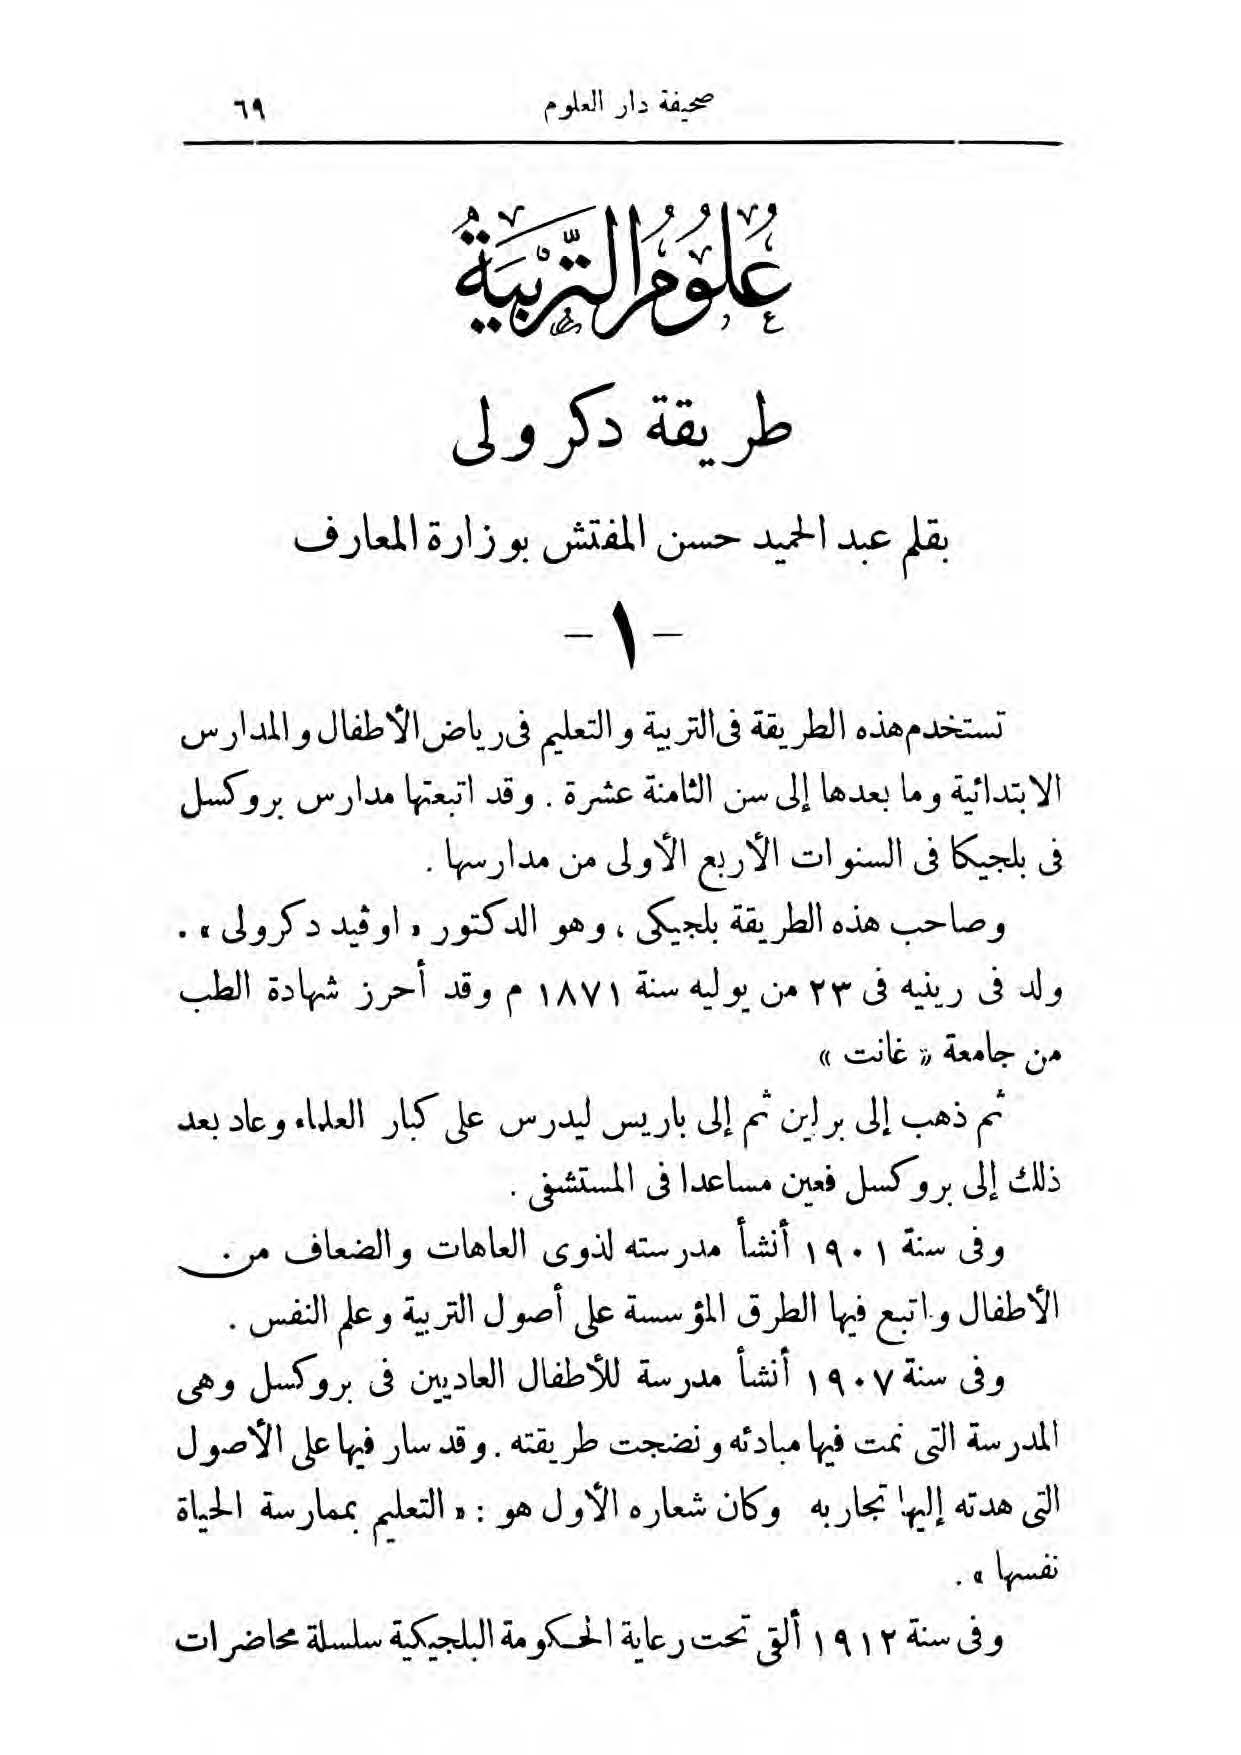 صحيفة دار العلوم ٦٩
عُلُومُ التَّرْبِيَةُ
طريقة دكرولى
بقلم عبد الحميد حسن المفتش بوزارة المعارف
- ١ -
تستخدم هذه الطريقة فى التربية والتعليم فى رياض الأطفال والمدارس
الابتدائية وما بعدها إلى سن الثامنة عشرة . وقد اتبعتها مدارس بروكسل
فى بلجيكا فى السنوات الأربع الأولى من مدارسها .
وصاحب هذه الطريقة بلجيكى ، وهو الدكتور « اوڤيد دكرولى » .
ولد فى رينيه فى ٢٣ من يوليه سنة ١٨٧١ م وقد أحرز شهادة الطب
من جامعة « غانت »
ثم ذهب إلى برلين ثم إلى باريس ليدرس على كبار العلماء وعاد بعد
ذلك إلى بروكسل فعين مساعدا فى المستشفى .
وفى سنة ١٩٠١ أنشأ مدرسته لذوى العاهات والضعاف من
الأطفال واتبع فيها الطرق المؤسسة على أصول التربية وعلم النفس .
وفى سنة ١٩٠٧ أنشأ مدرسة للأطفال العاديين فى بروكسل وهى
المدرسة التى نمت فيها مبادئه ونضجت طريقته . وقد سار فيها على الأصول
التى هدته إليها تجاربه وكان شعاره الأول هو : « التعليم بممارسة الحياة
نفسها » .
وفى سنة ١٩١٢ ألقى تحت رعاية الحكومة البلجيكية سلسلة محاضرات